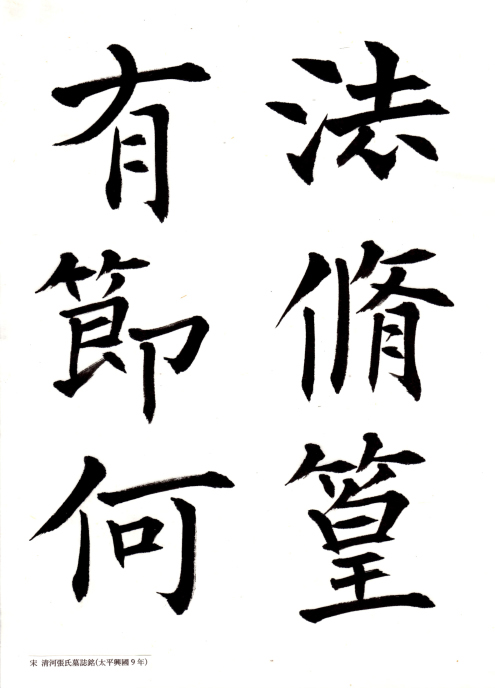 法脩篁
有節何
宋 清河張氏墓誌銘(太平興國9年)